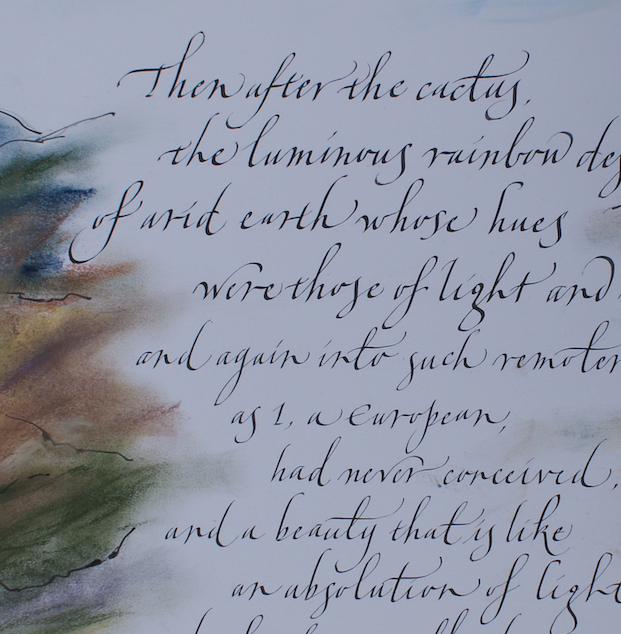 Then after the cactus,
the luminous rainbow
of arid earth whose hues
were those of light and
and again into such
as I, a European,
had never conceived,
and a beauty that is like
an absolution of light